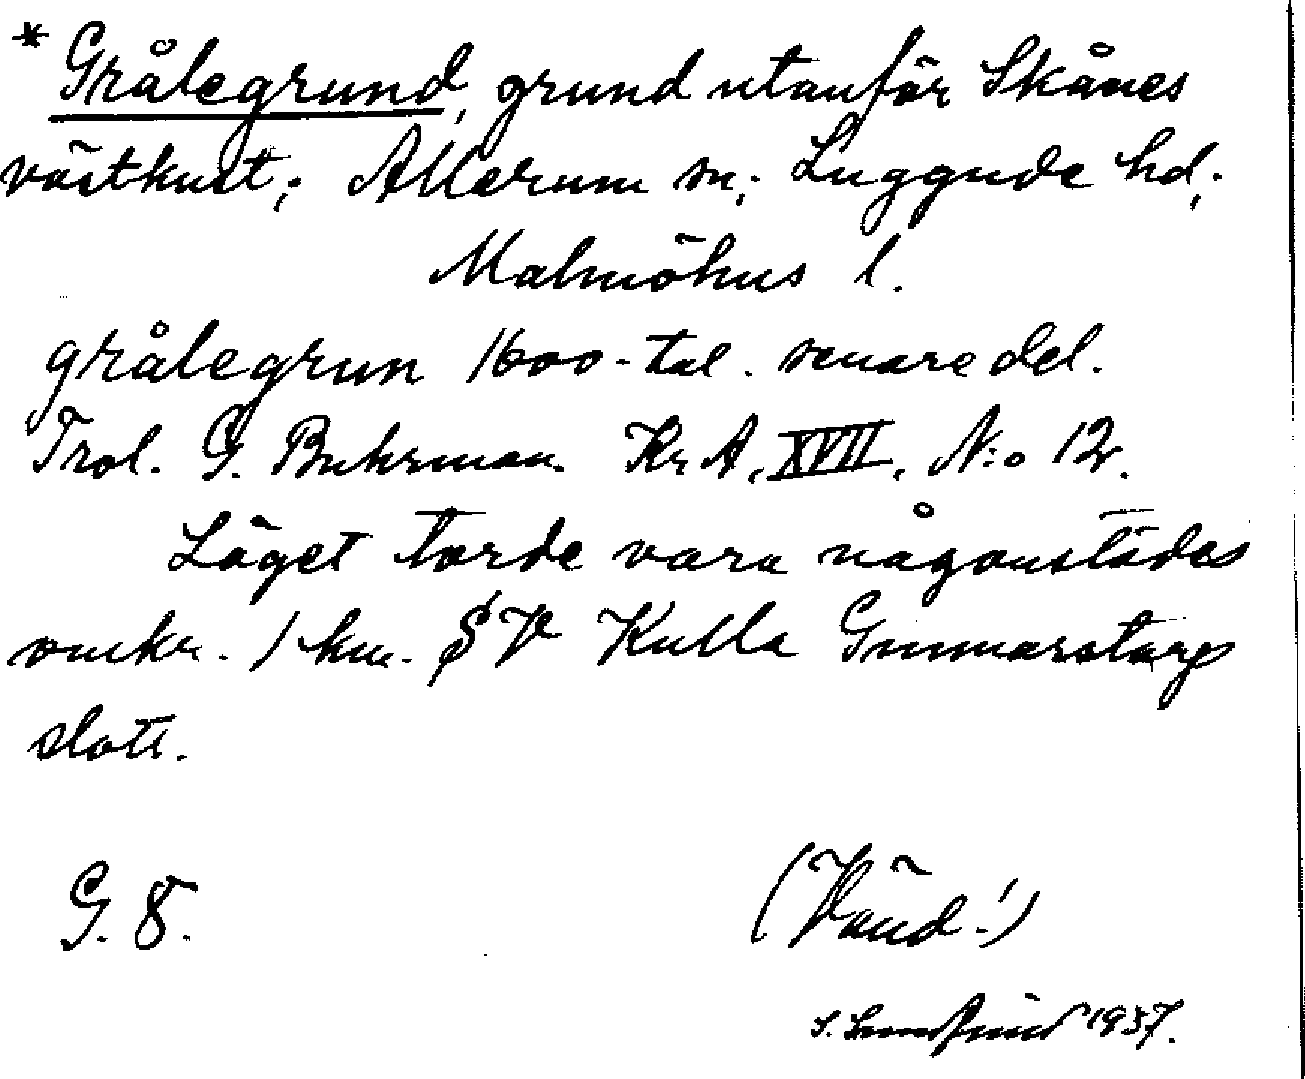 * Grålegrund, grund utanför Skånes
västkust; Allerum sn; Luggude hd;
Malmöhus l.
grålegrun 1600-tal. senare del.
Trol. G. Buhrman. Kr A, XVII, N:o 12.
Läget torde vara någonstädes
omkr. 1 km. SV Kulla Gunnarstorp
slott.
G. 8.
(Vänd!)
1937.